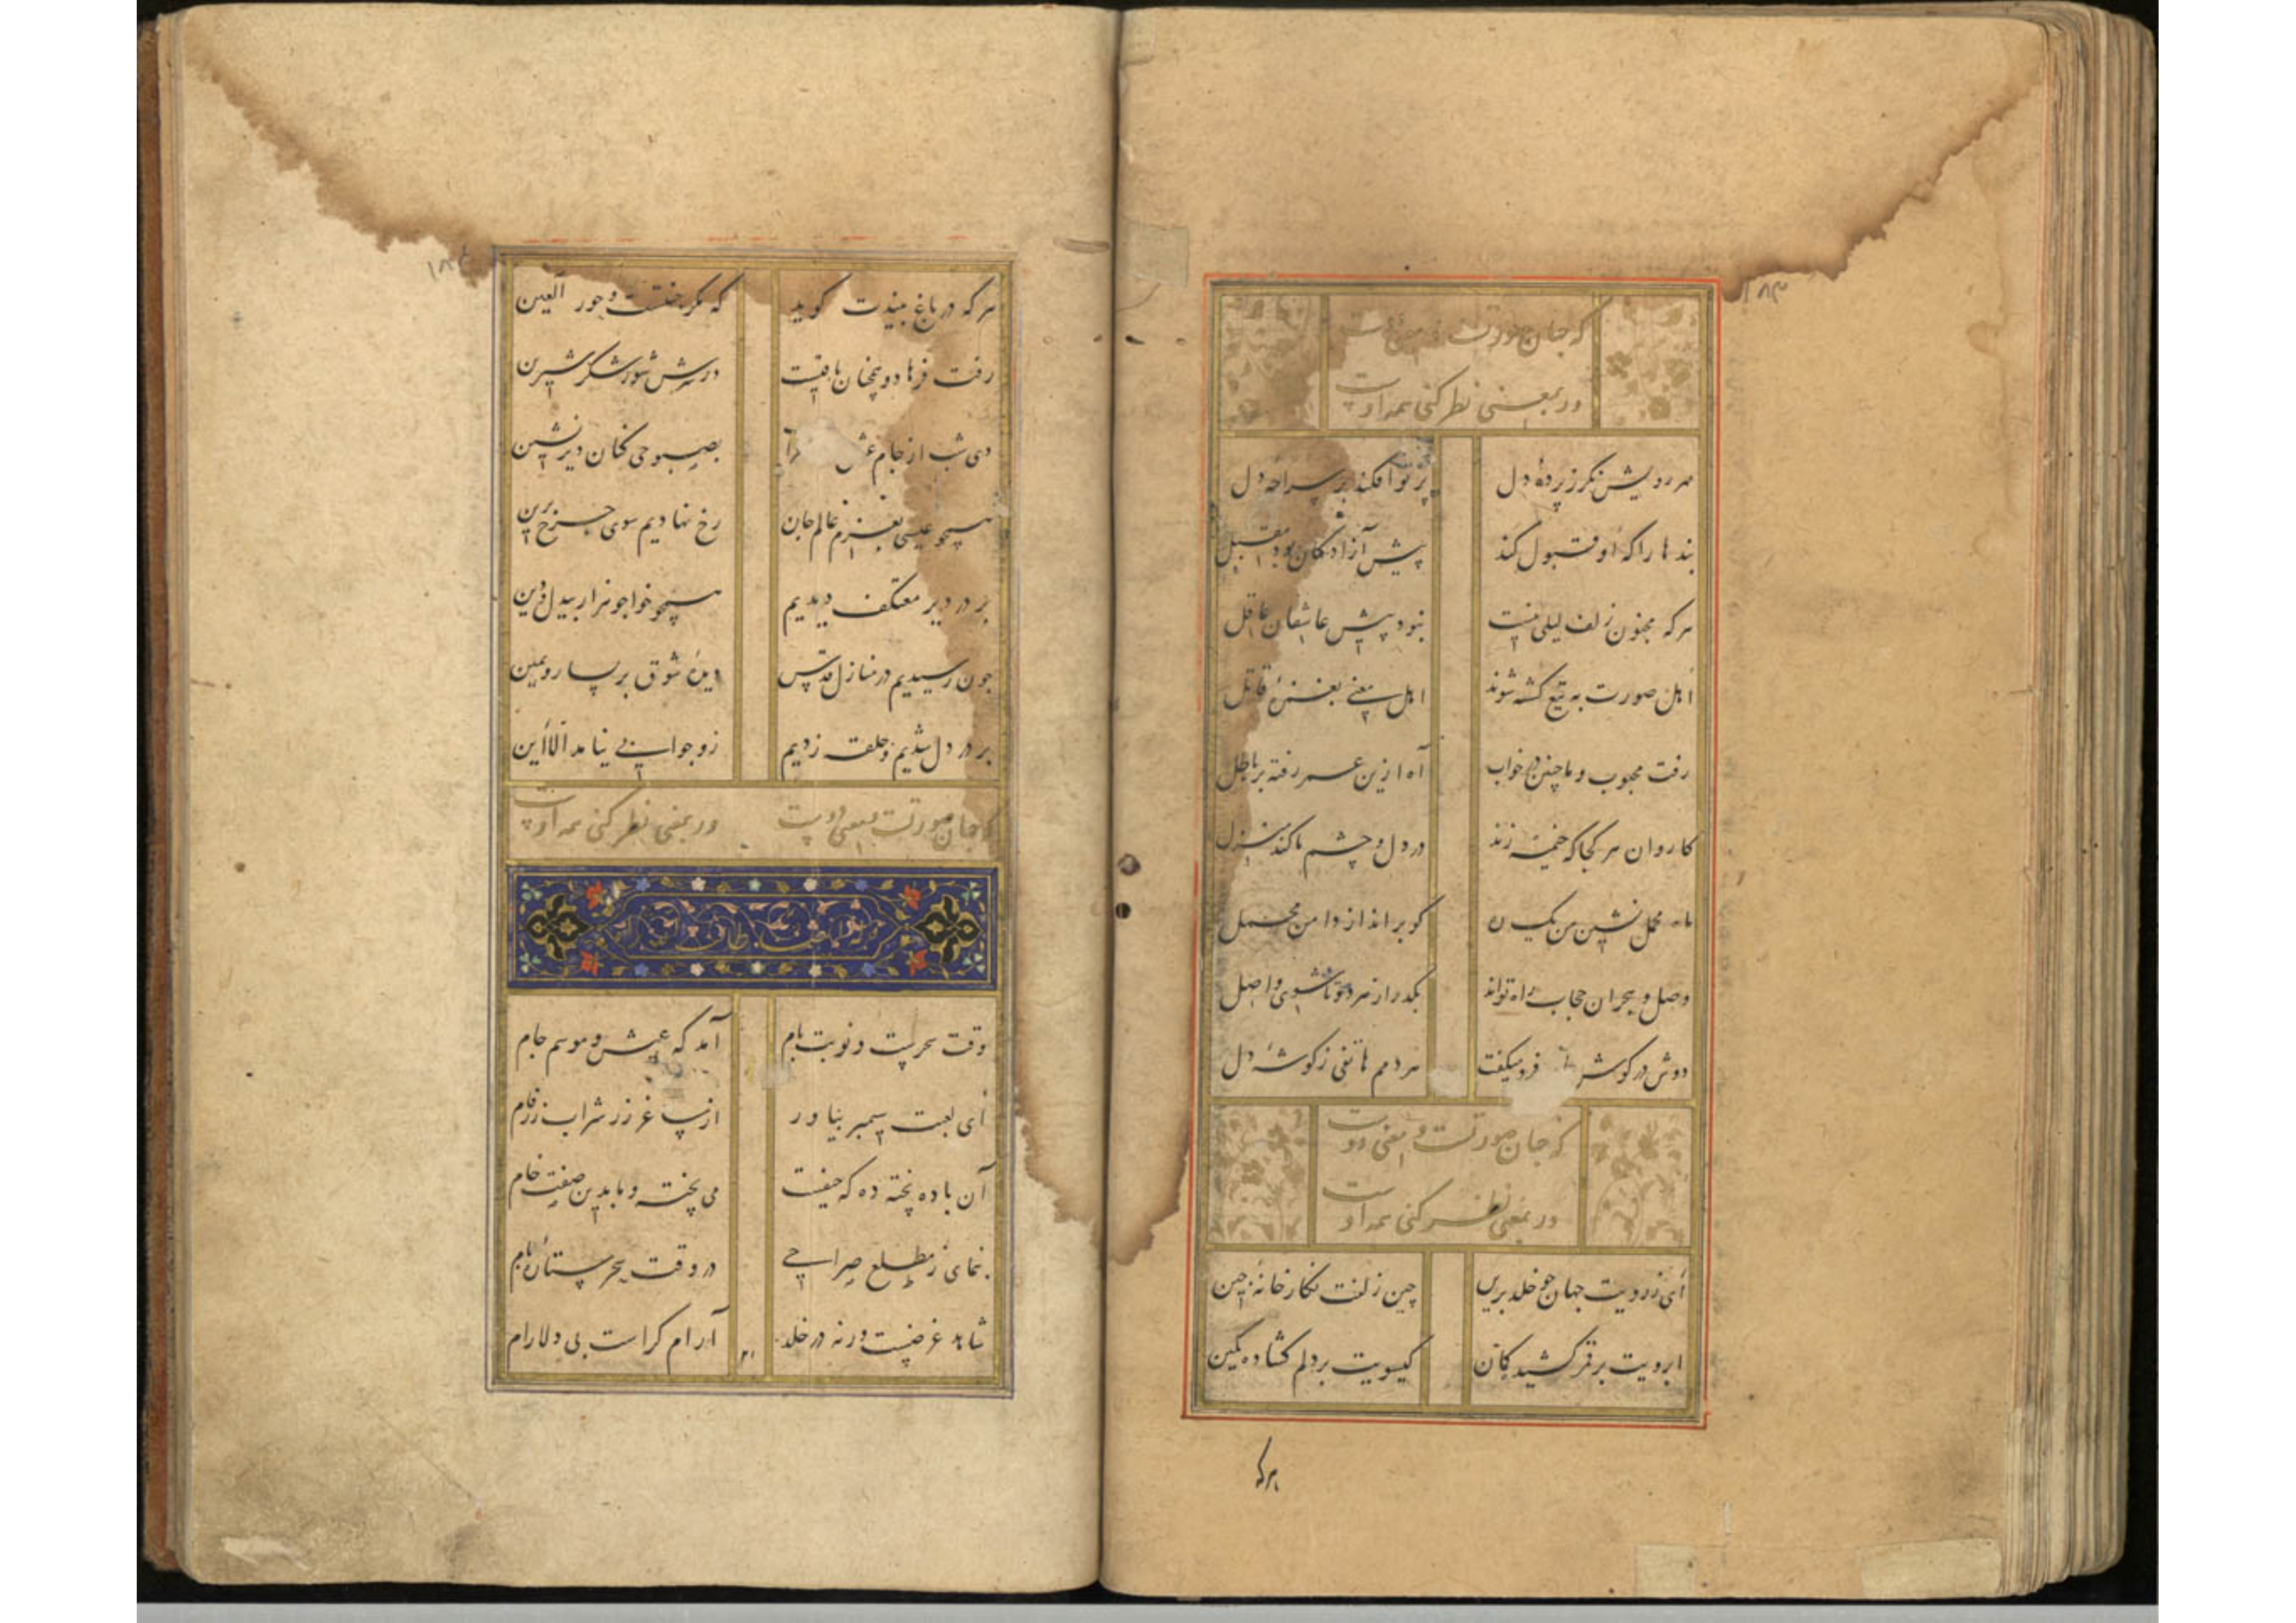 ۱۸۳
که جان صورتست و معنی دوست
ور بمعنی نظر کنی همه اوست
مهر رویش نگر ز پرده دل
پرتو افکند بر سراچه دل
بندها را که او قبول کند
پیش آزادگان بود مقبل
هر که مجنون زلف لیلی نیست
نبود پیش عاشقان عاقل
اهل صورت به تیغ کشته شوند
اهل معنی بغمزهٔ قاتل
رفت محبوب و ما چنین در خواب
آه ازین عمر رفته بر باطل
کاروان هر کجا که خیمه زند
در دل و چشم ما کند منزل
ماه محمل نشین من یک
کو برانداز دامن محمل
وصل و هجران حجاب راه تواند
بگذر از هر دو تا شوی واصل
دوش در گوش فرو میگفت
هر دمم هاتفی ز گوشهٔ دل
که جان صورتست و معنی دوست
ور بمعنی نظر کنی همه اوست
ای ز رویت جهان چو خلد برین
چین زلفت نگارخانهٔ چین
ابرویت بر قمر کشیده کمان
گیسویت بر دلم گشاده کمین
هرکه
هر که در باغ بیندت گوید
که مگر جنتست و حور العین
رفت فرهاد و همچنان باقیست
در سرش شور شکر شیرین
دی شب از جام عشق
بصبوحی کنان دیرنشین
همچو عیسی بعزم عالم جان
رخ نهادیم سوی چرخ برین
بر در دیر معتکف دیدیم
همچو خواجو هزار بیدل و دین
چون رسیدیم در منازل قدس
دیده شوق بر یسار و یمین
بر در دل شدیم و حلقه زدیم
زو جوابی نیامد الا این
که جان صورتست و معنی دوست
ور بمعنی نظر کنی همه اوست
وقت سحرست و نوبت بام
آمد گه عیش و موسم جام
ای لعبت سیمبر بیاور
از ساغر زر شراب زرفام
آن باده پخته ده که حیفست
می پخته و ما بدین صفت خام
بنمای ز مطلع صراحی
در وقت سحر ستارهٔ بام
شاهد غرضیست ورنه در خلد
آرام کراست بی دلارام